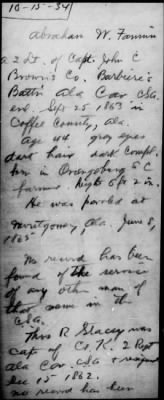 10-15-34
Abraham W. Fannin
a 2 Lt. of Capt. John C
Brown's Co. Barbiere's
Battn Ala Cav CSA.
enl. Sept 25, 1863 in
Coffee County, Ala.
age 44 grey eyes
dark hair dark compl.
b in Orangeburg S C
farmer. Hight 6 ft 2 in.
He was paroled at
Montgomery, Ala. June 8,
1865
No record has been
found of the service
of any other man of
that name in the
CSA.
Thos R Stacey was
Capt of Co. K, 2 Regt
Ala Cav. CSA + resigned
Dec 15 1862.
no record has been